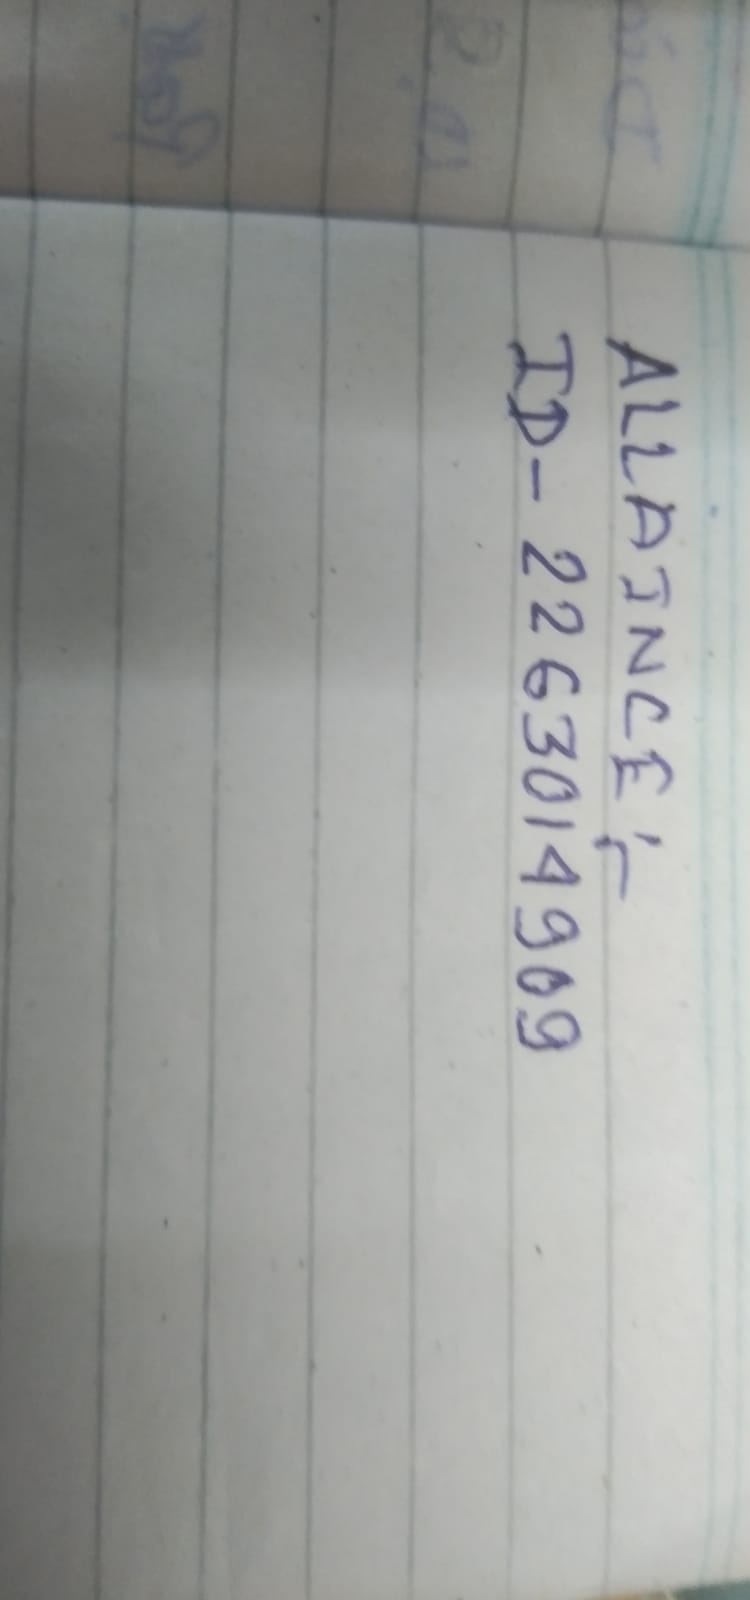 ALLAINCE :-
ID- 2263014909